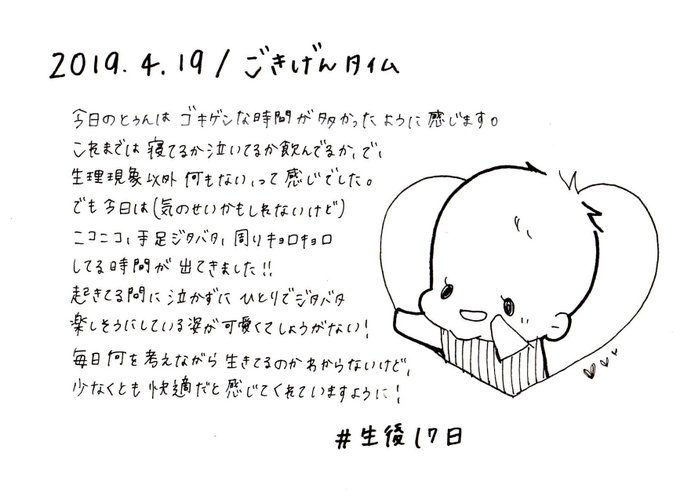 2019.4.19/ごきげんタイム
今日のとぅんは ゴキゲンな時間が多かったように感じます。
これまでは寝てるか泣いてるか飲んでるか、で、
生理現象以外何もない、って感じでした。
でも今日は(気のせいかもしれないけど)
ニコニコ、手足ジタバタ、周りキョロキョロ
してる時間が出てきました!!
起きてる間に泣かずにひとりでジタバタ
楽しそうにしている姿が可愛くてしょうがない!
毎日何を考えながら生きてるのかわからないけど、
少なくとも快適だと感じてくれていますように!
#生後17日